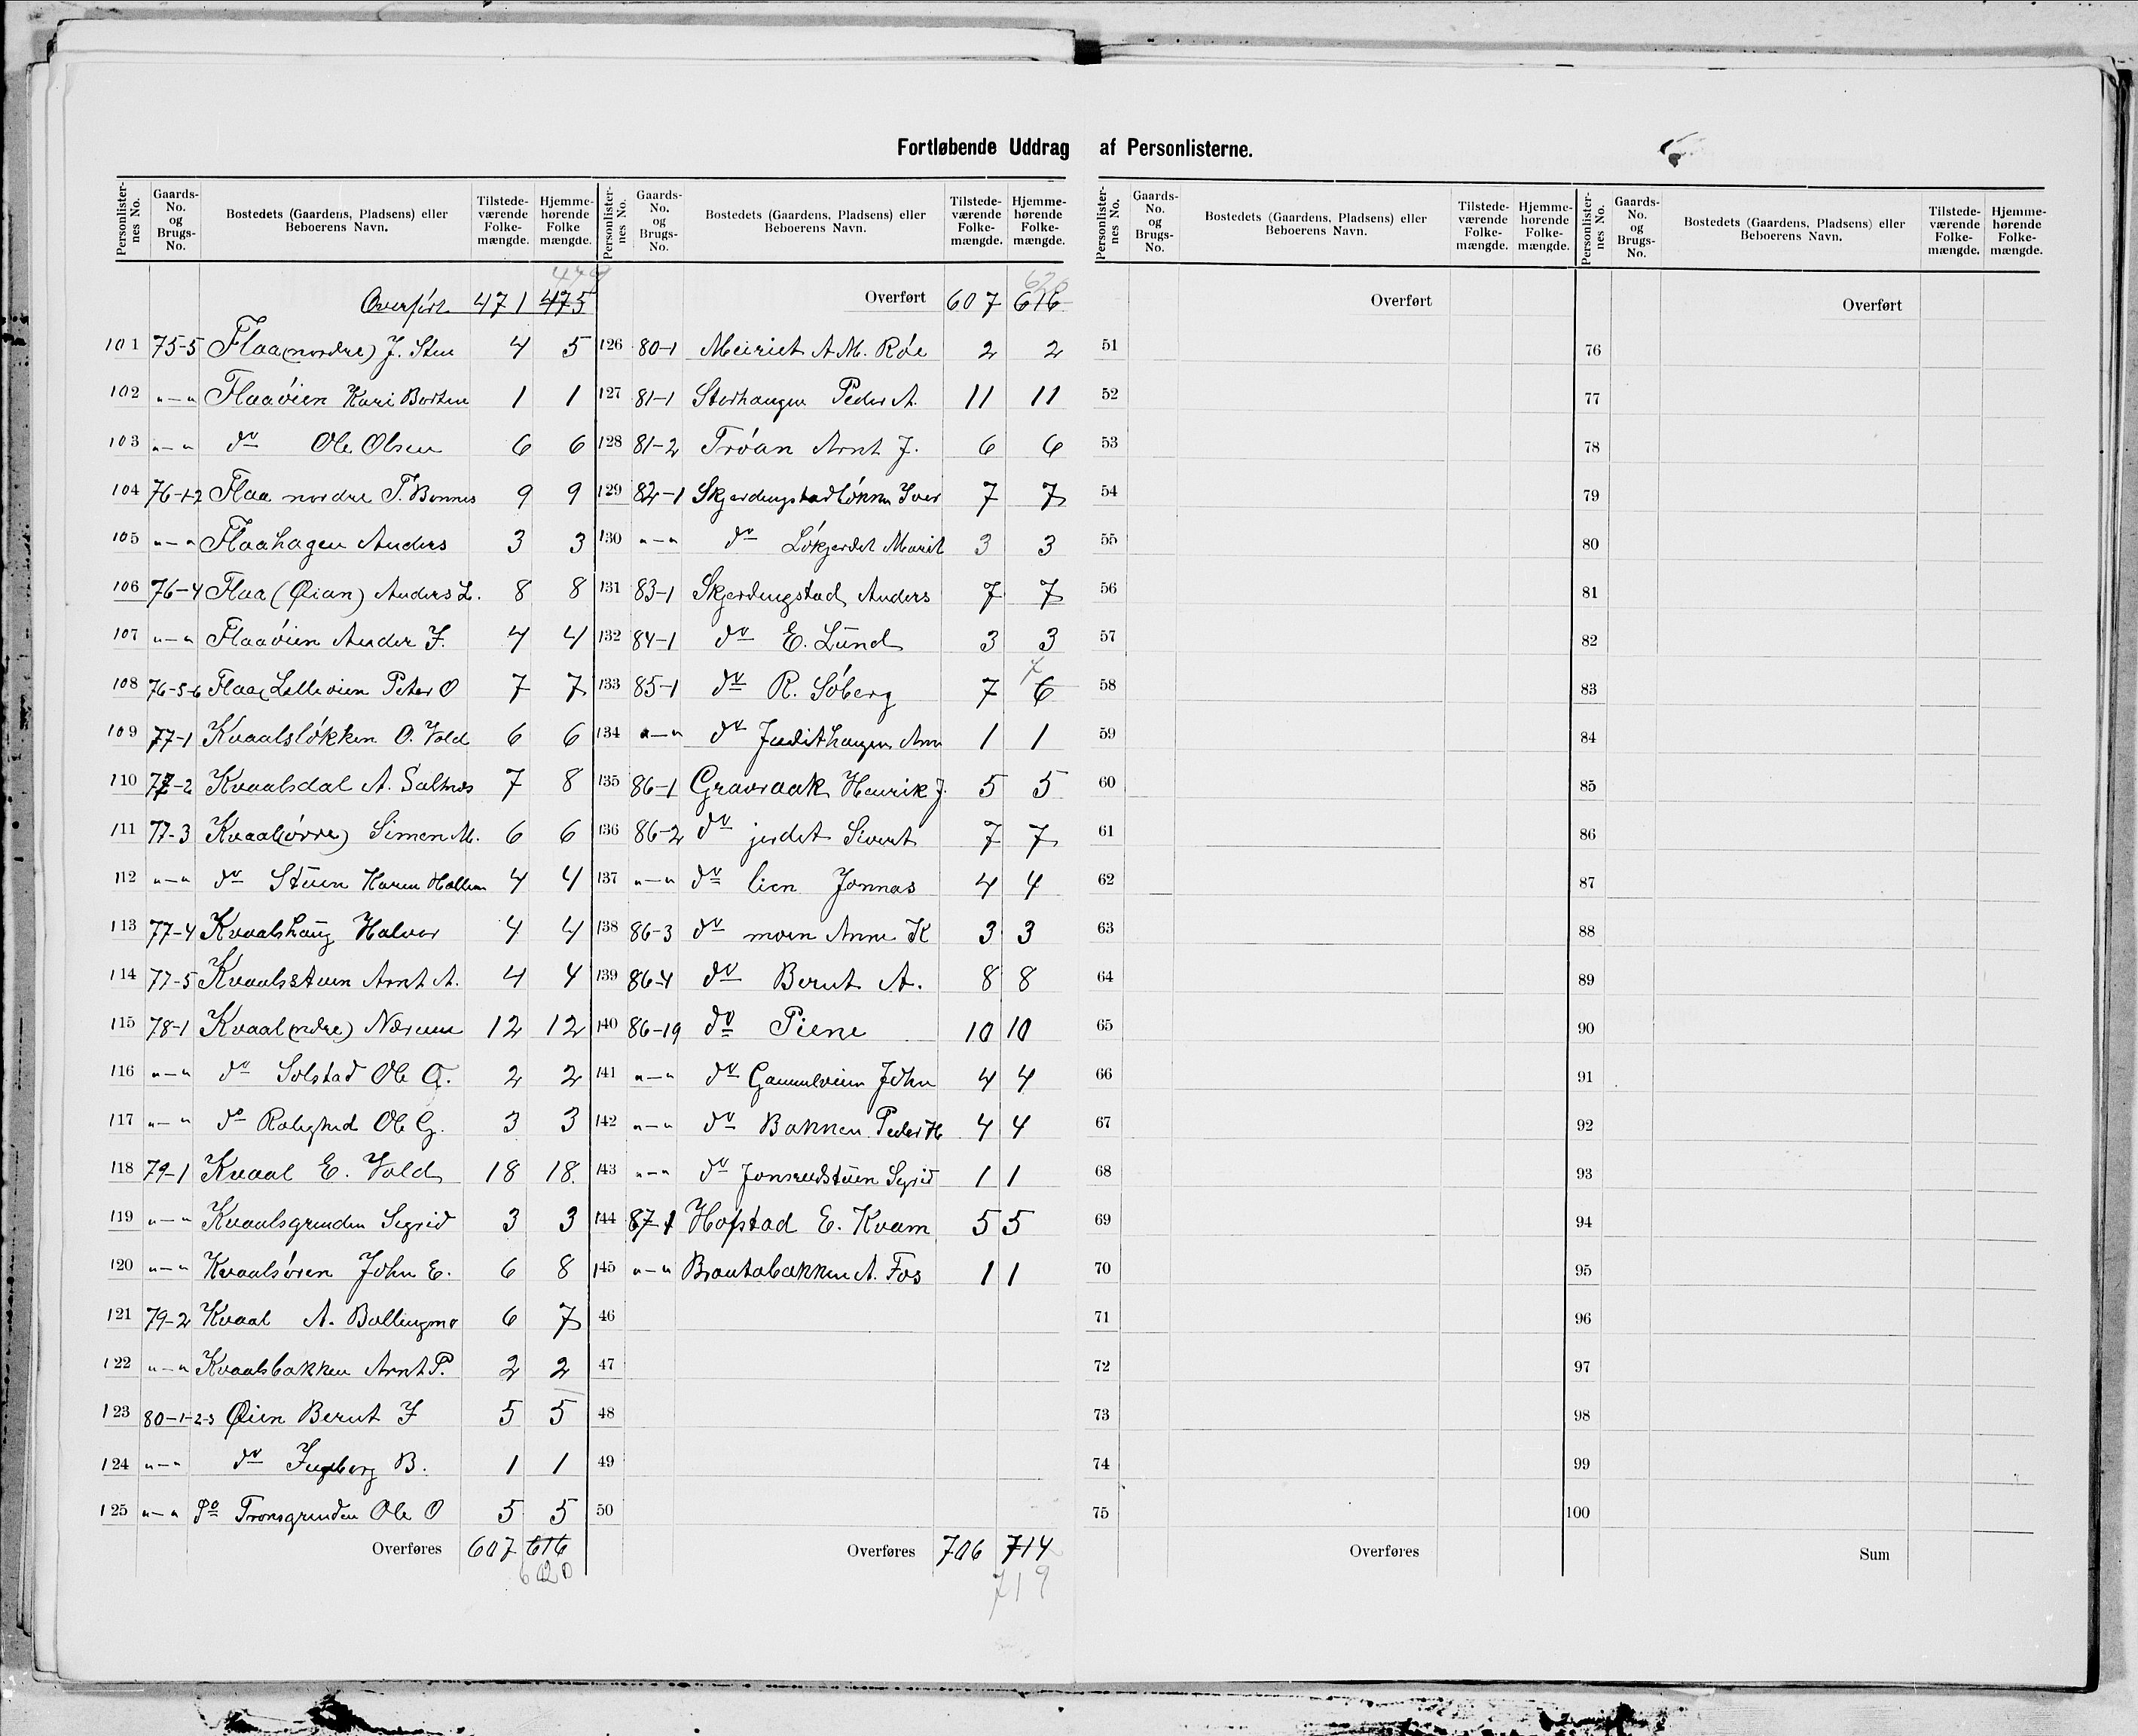 Fortløbende Uddrag af Personlisterne.
Personlister-nes No. Gaards-No. og Brugs-No. Bostedets (Gaardens, Pladsens) eller Beboerens Navn. Tilstede-værende Folke-mængde. Hjemme-hørende Folke mængde.
479
Overført 471 475
101 75-5 Flaa (nordre) J. Stue 4 5
102 "—" Flaaøien Kari Borten 1 1
103 "—" do Ole Olsen 6 6
104 76-1-2 Flaa nordre P. Bonnes 9 9
105 "—" Flaahagen Anders 3 3
106 76-4 Flaa (Øian) Anders L. 8 8
107 "—" Flaaøien Ander J. 4 4
108 76-5-6 Flaa Lilleøien Peter O 7 7
109 77-1 Kvaalsløkken O. Vold 6 6
110 77-2 Kvaalsdal A. Saltnes 7 8
111 77-3 Kvaal (øvre) Simon M. 6 6
112 "—" do Stuen Karen 4 4
113 77-4 Kvaalshaug Halvor 4 4
114 77-5 Kvaalsstuen Arnt A. 4 4
115 78-1 Kvaal (ndre) Nærum 12 12
116 "—" do Solstad Ole O. 2 2
117 "—" do Rolighed Ole G. 3 3
118 79-1 Kvaal E. Vold 18 18.
119 "—" Kvaalsgrinden Sigrid 3 3
120 "—" Kvaalsøren John E. 6 8
121 79-2 Kvaal A. Bollingmo 6 7
122 "—" Kvaalsbakken Arnt P. 2 2
123 80-1-2-3 Øien Bernt J 5 5
124 "—" do Ingeborg B. 1 1
125 "—" do Tronsgrinden Ole O 5 5
Overføres 607 616
620
Personlister-nes No. Gaards-No. og Brugs-No. Bostedets (Gaardens, Pladsens) eller Beboerens Navn. Tilstede-værende Folke-mængde. Hjemme-hørende Folke-mængde.
620
Overført 607 616
126 80-1 Meieriet A M. Røe 2 2
127 81-1 Storhaugen Peder A. 11 11
128 81-2 Trøan Arnt J. 6 6
129 82-1 Skjerdingstadløkken Iver 7 7
130 "—" do Løkjerdet Marit 3 3
131 83-1 Skjerdingstad Anders 7 7
132 84-1 do E. Lund 3 3
7
133 85-1 do R. Søberg 7 6
134 "—" do Judithaugen Ann 1 1
135 86-1 Gravraak Henrik J. 5 5
136 86-2 do jerdet Sivert 7 7
137 "—" do lien Jonnas 4 4
138 86-3 do moen Anne K 3 3
139 86-4 do Bernt A. 8 8
140 86-19 do Piene 10 10
141 "—" do Gammeløien John 4 4
142 "—" do Bakken Peder H 4 4
143 "—" do Jonsrudstuen Sigrid 1 1
144 87-1 Hofstad E. Kvam 5 5
145 "—" Brautabakken A. Fos 1 1
46
47
48
49
50
Overføres 706 714
719
Personlister-nes No. Gaards-No. og Brugs-No. Bostedets (Gaardens, Pladsens) eller Beboerens Navn. Tilstede-værende Folke-mængde. Hjemme-hørende Folke-mængde.
Overført
51
52
53
54
55
56
57
58
59
60
61
62
63
64
65
66
67
68
69
70
71
72
73
74
75
Overføres
Personlister-nes No. Gaards-No. og Brugs-No. Bostedets (Gaardens, Pladsens) eller Beboerens Navn. Tilstede-værende Folke-mængde. Hjemme-hørende Folke-mængde.
Overført
76
77
78
79
80
81
82
83
84
85
86
87
88
89
90
91
92
93
94
95
96
97
98
99
100
Sum